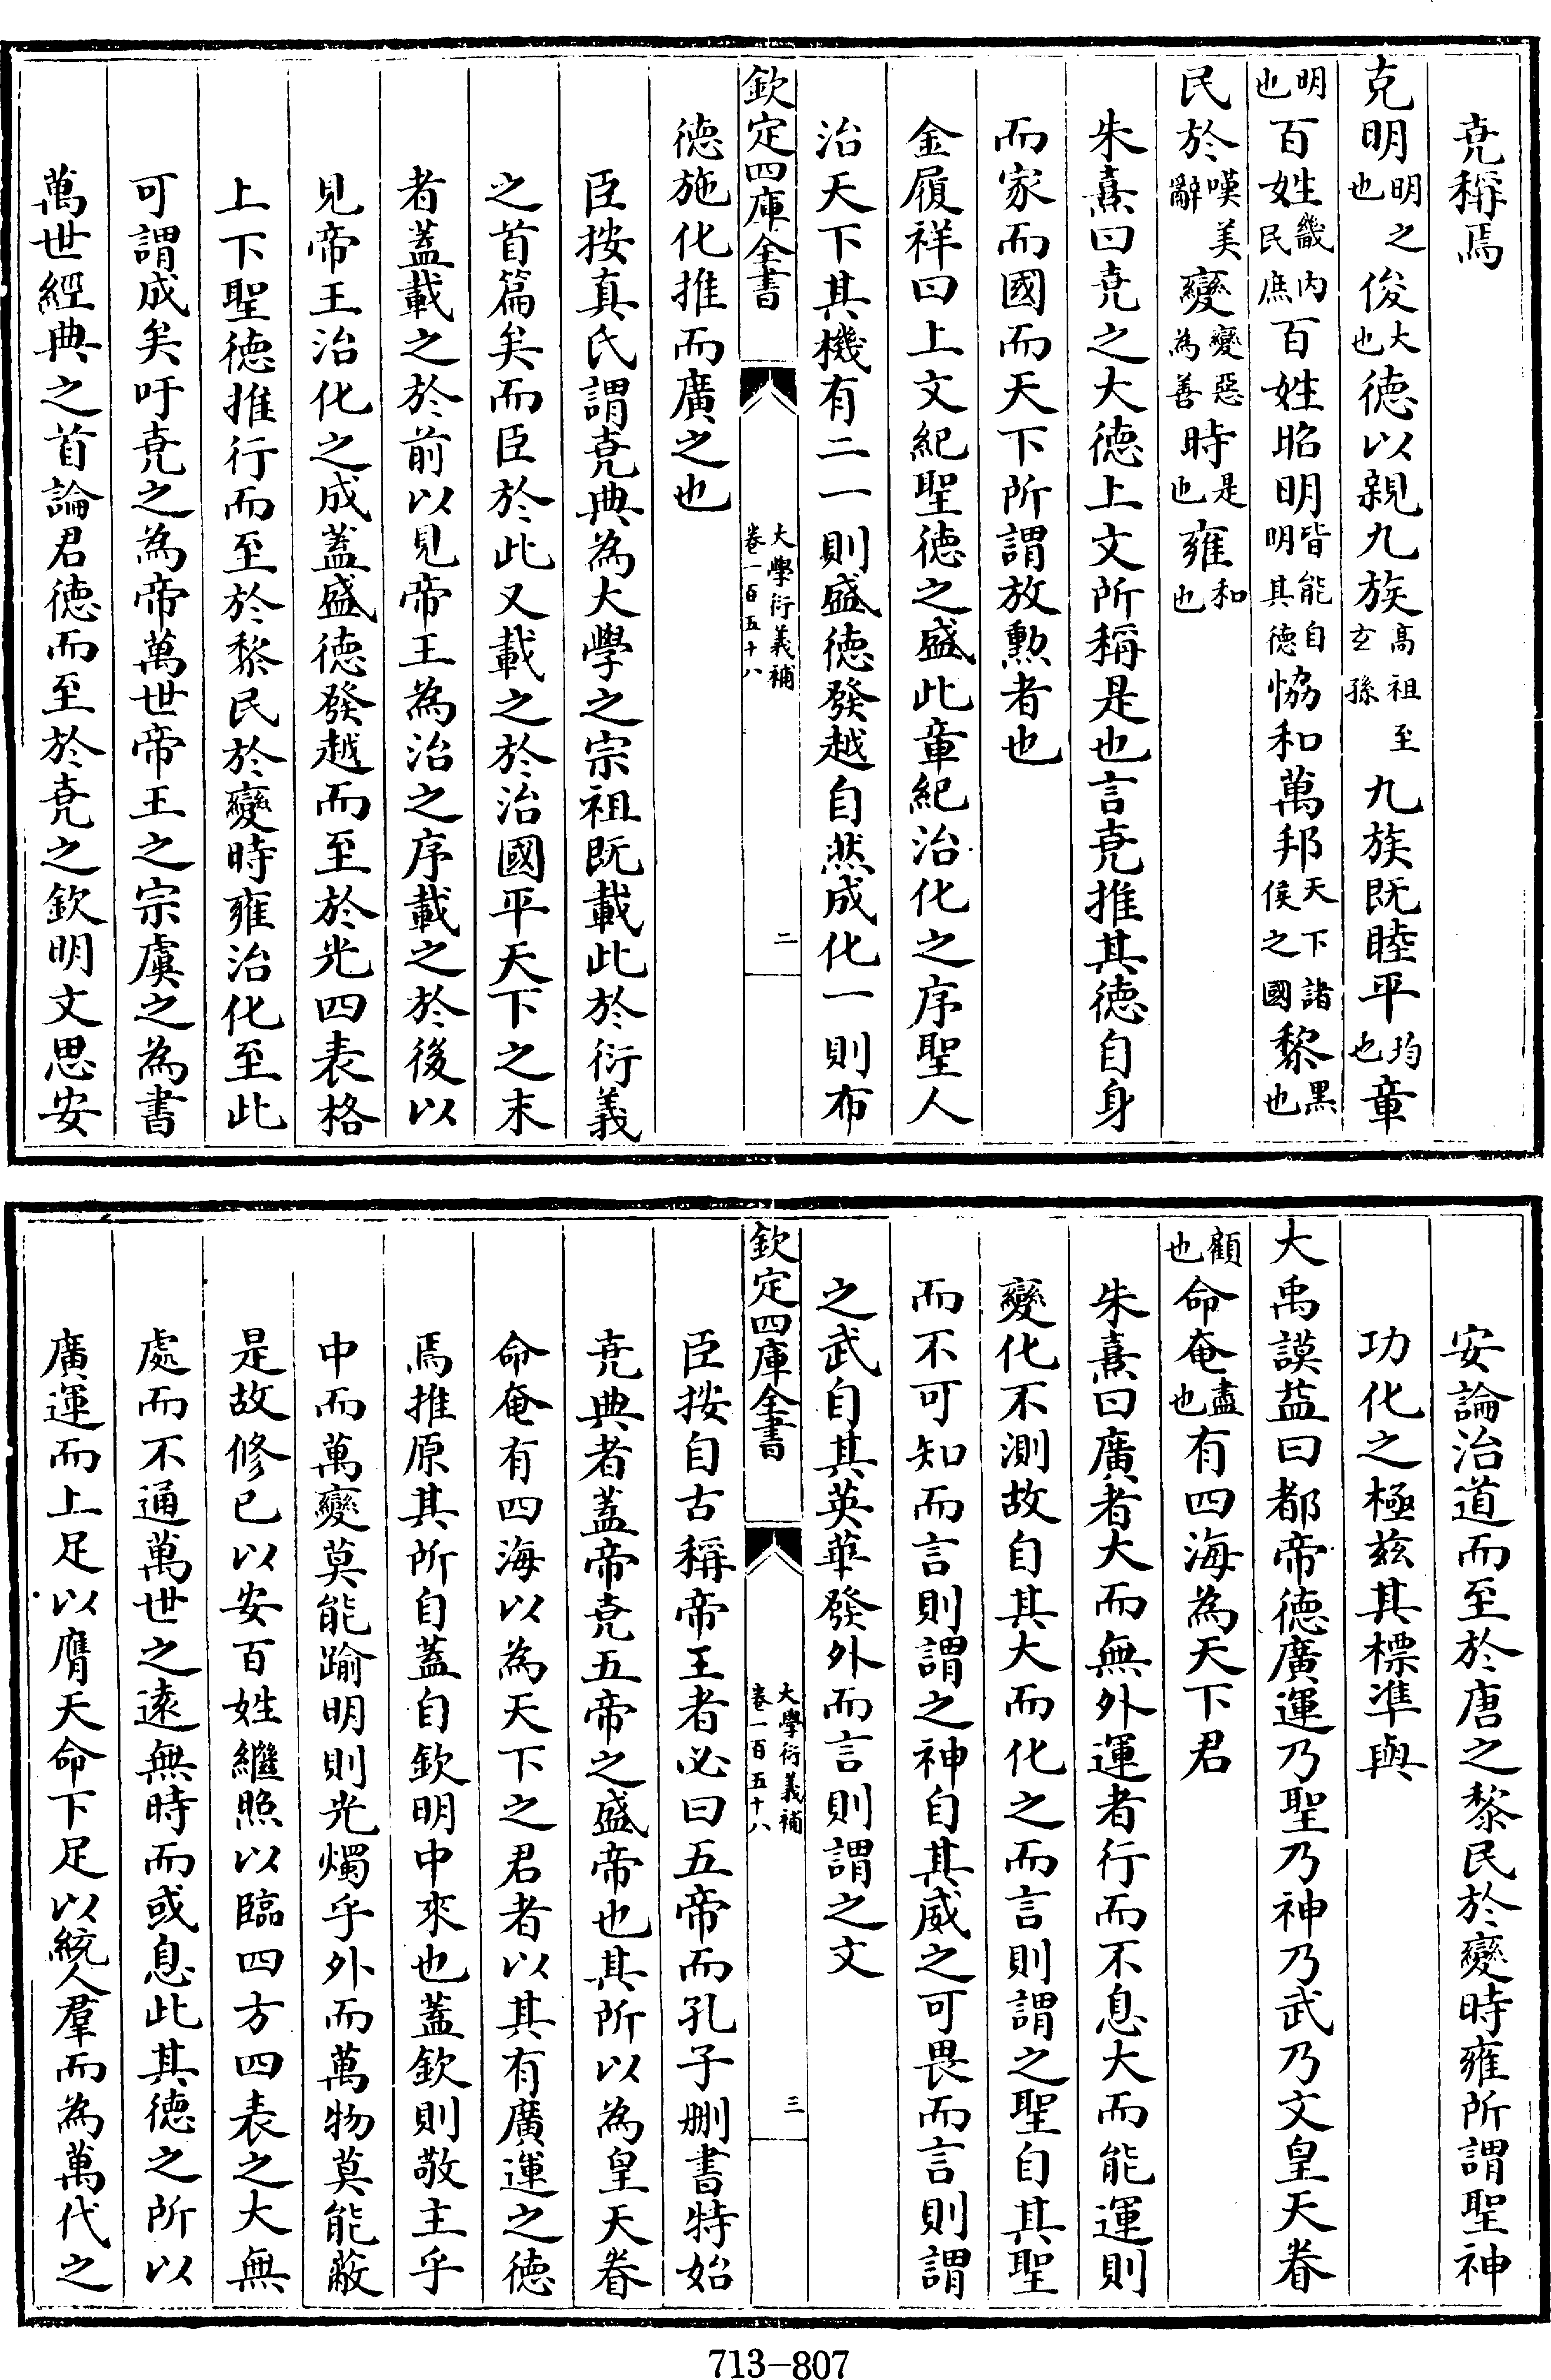 堯稱焉
克明明之也俊大也德以親九族高祖至玄孫九族既睦平均也章
明也百姓畿内民庶百姓昭明皆能自明其德恊和萬邦天下諸侯之國黎黑也
民於嘆美辭變變惡為善時是也雍和也
朱熹曰堯之大德上文所稱是也言堯推其德自身
而家而國而天下所謂放勲者也
金履祥曰上文紀聖德之盛此章紀治化之序聖人
治天下其機有二一則盛德發越自然成化一則布
欽定四庫全書
大學衍義補
卷一百五十八
二
德施化推而廣之也
臣按真氏謂堯典為大學之宗祖既載此於衍義
之首篇矣而臣於此又載之於治國平天下之末
者蓋載之於前以見帝王為治之序載之於後以
見帝王治化之成蓋盛德發越而至於光四表格
上下聖德推行而至於黎民於變時雍治化至此
可謂成矣吁堯之為帝萬世帝王之宗虞之為書
萬世經典之首論君德而至於堯之欽明文思安
安論治道而至於唐之黎民於變時雍所謂聖神
功化之極兹其標準與
大禹謨益曰都帝德廣運乃聖乃神乃武乃文皇天眷
顧也命奄盡也有四海為天下君
朱熹曰廣者大而無外運者行而不息大而能運則
變化不測故自其大而化之而言則謂之聖自其聖
而不可知而言則謂之神自其威之可畏而言則謂
之武自其英華發外而言則謂之文
欽定四庫全書
大學衍義補
卷一百五十八
三
臣按自古稱帝王者必曰五帝而孔子刪書特始
堯典者蓋帝堯五帝之盛帝也其所以為皇天眷
命奄有四海以為天下之君者以其有廣運之德
焉推原其所自蓋自欽明中來也蓋欽則敬主乎
中而萬變莫能踰明則光燭乎外而萬物莫能蔽
是故修已以安百姓繼照以臨四方四表之大無
處而不通萬世之遠無時而或息此其德之所以
廣運而上足以膺天命下足以統人羣而為萬代之
713-807